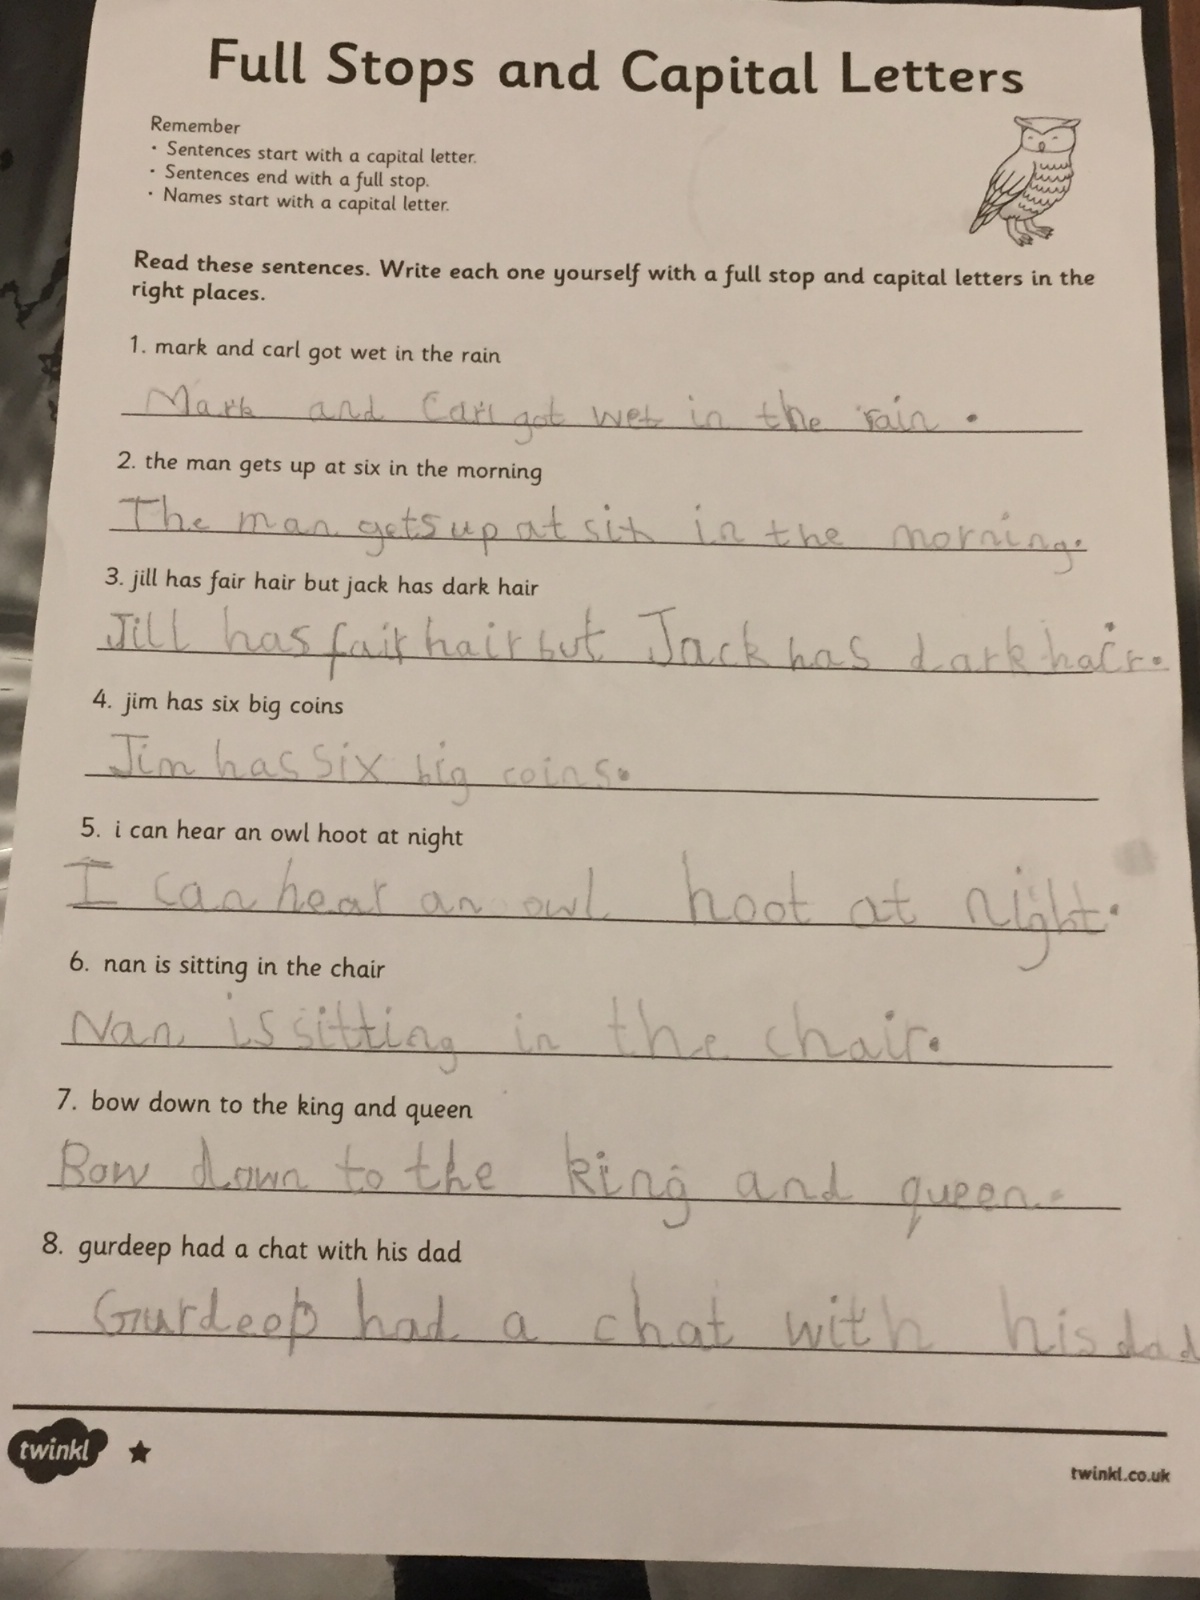 Full Stops and Capital Letters
Remember
• Sentences start with a capital letter.
• Sentences end with a full stop.
• Names start with a capital letter.
Read these sentences. Write each one yourself with a full stop and capital letters in the
right places.
1. mark and carl got wet in the rain
Mark and Carl got wet in the rain .
2. the man gets up at six in the morning
The man gets up at six in the morning.
3. jill has fair hair but jack has dark hair
Jill has fair hair but Jack has dark hair.
4. jim has six big coins
Jim has six big coins.
5. i can hear an owl hoot at night
I can hear an owl hoot at night.
6. nan is sitting in the chair
Nan is sitting in the chair.
7. bow down to the king and queen
Bow down to the king and queen.
8. gurdeep had a chat with his dad
Gurdeep had a chat with his dad
twinkl
twinkl.co.uk